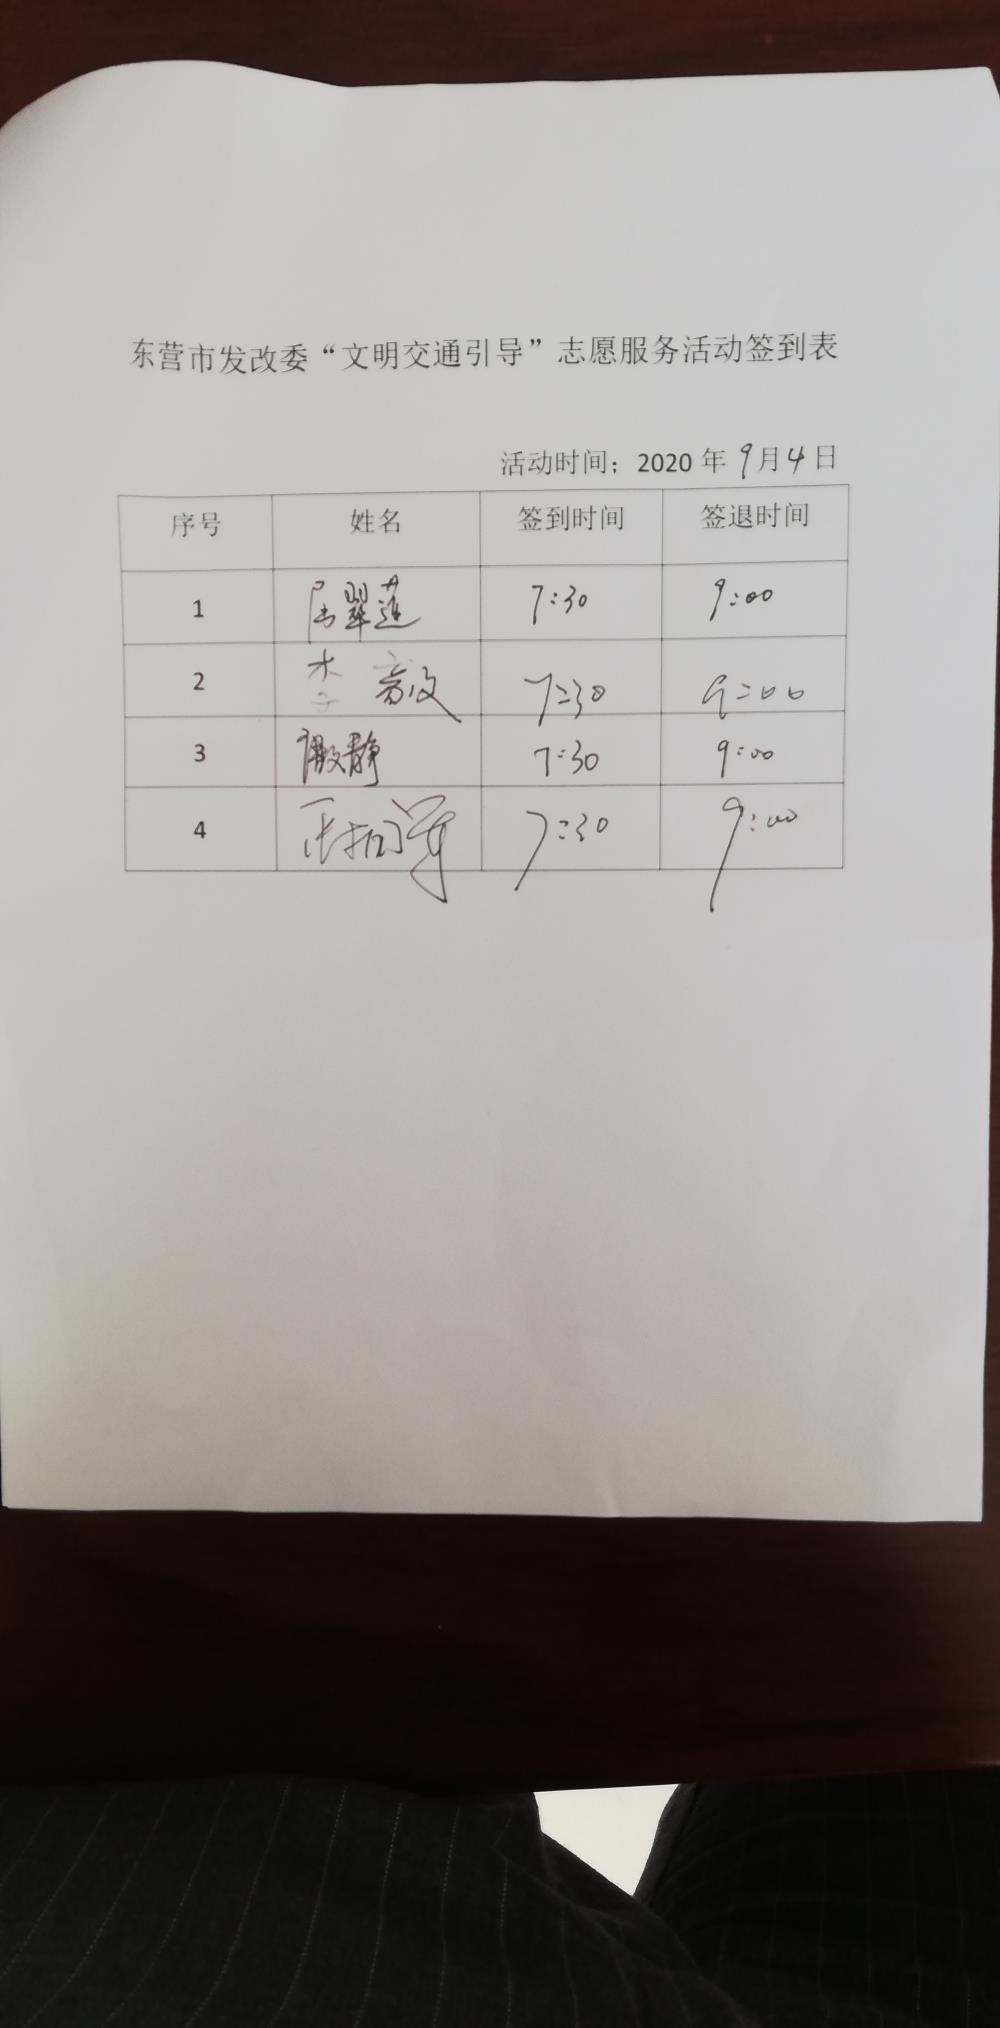 东营市发改委“文明交通引导”志愿服务活动签到表
活动时间：2020 年 9月4日
序号 姓名 签到时间 签退时间
1 翠莲 7:30 9:00
2 李 7:30 9:00
3 静 7:30 9:00
4 7:30 9:00